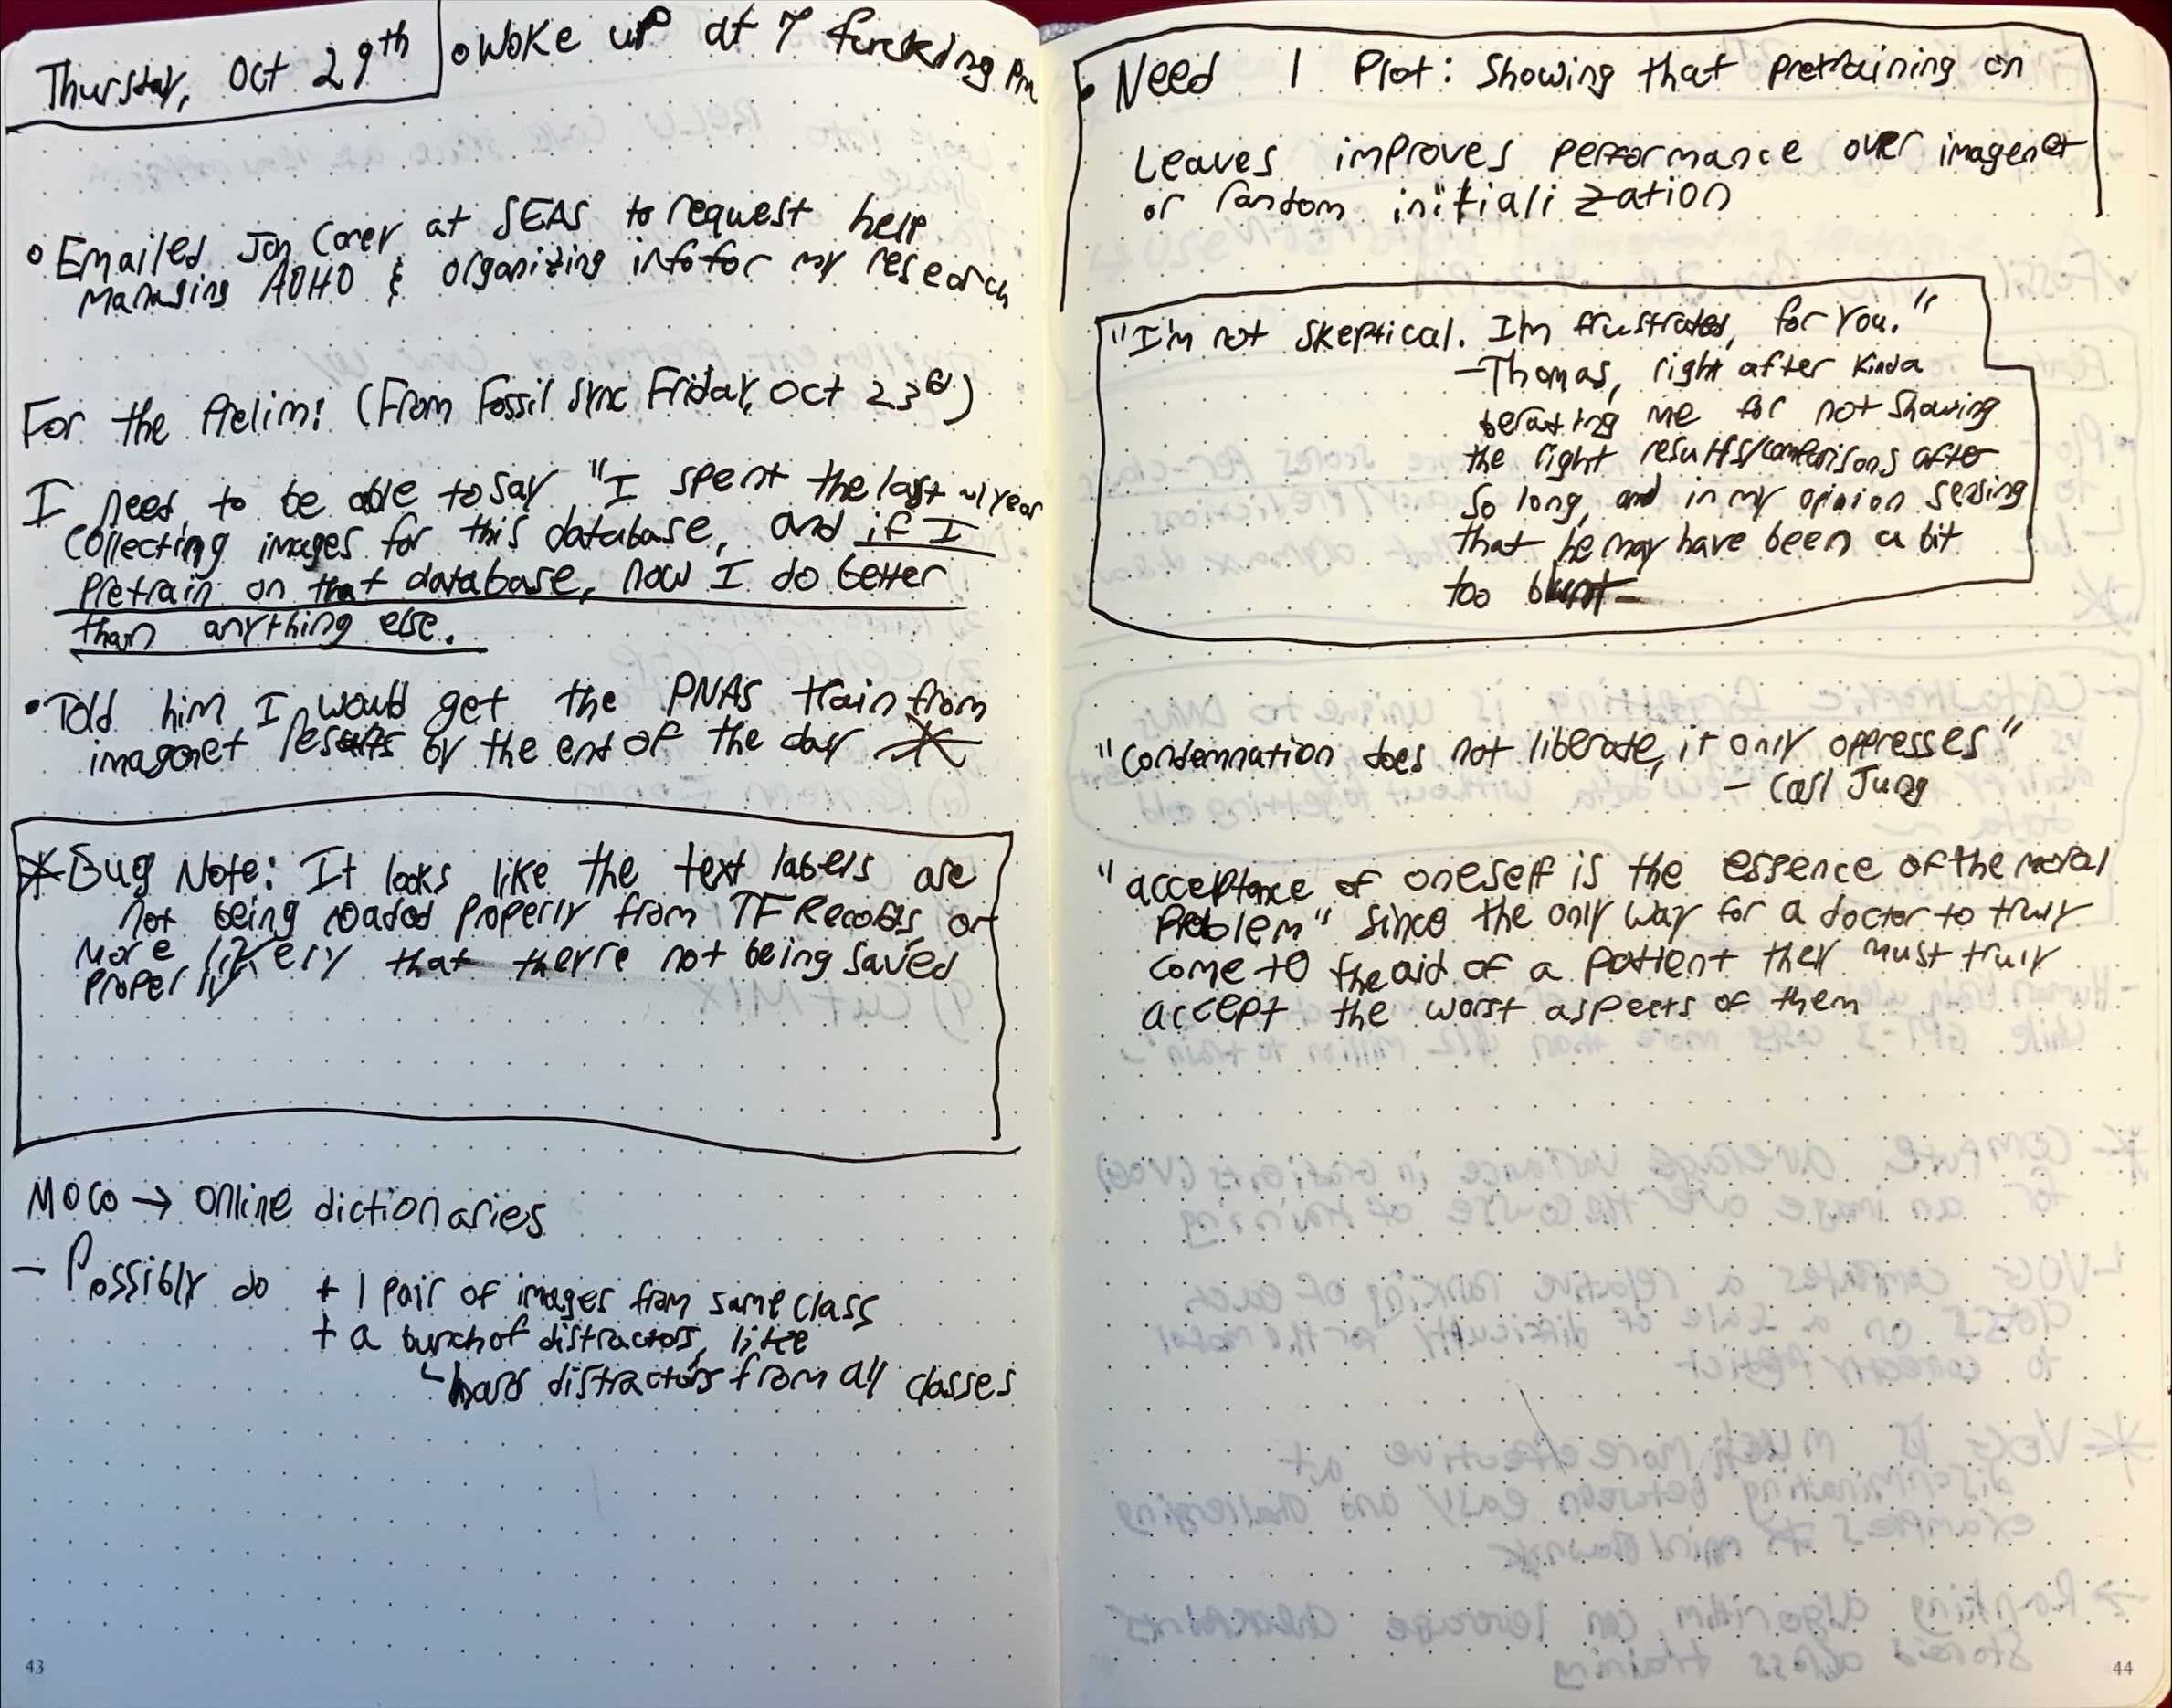 Thursday, Oct 29th
• Woke up at 7 fuckding pm
• Emailed Jon Corey at SEAS to request help
managing ADHD & organizing info for my research
For the Prelim: (From Fossil Sync Friday, Oct 23)
I need to be able to say "I spent the last ~1 year
collecting images for this database, and if I
pretrain on that database, now I do better
than anything else.
• Told him I would get the PNAS train from
imagenet results by the end of the day *
* Bug Note: It looks like the text labels are
not being loaded properly from TFRecords or
more likely that they're not being saved
properly
MoCo → online dictionaries
- Possibly do + 1 pair of images from same class
+ a bunch of distractors, like
↳ hard distractors from all classes
43
• Need 1 Plot: Showing that pretraining on
Leaves improves performance over imagenet
or random initialization
"I'm not skeptical. I'm frustrated, for you."
- Thomas, right after kinda
berating me for not showing
the right results/comparisons after
so long, and in my opinion sensing
that he may have been a bit
too blunt-
"condemnation does not liberate, it only oppresses"
- Carl Jung
"acceptance of oneself is the essence of the moral
problem" since the only way for a doctor to truly
come to the aid of a patient they must truly
accept the worst aspects of them
44